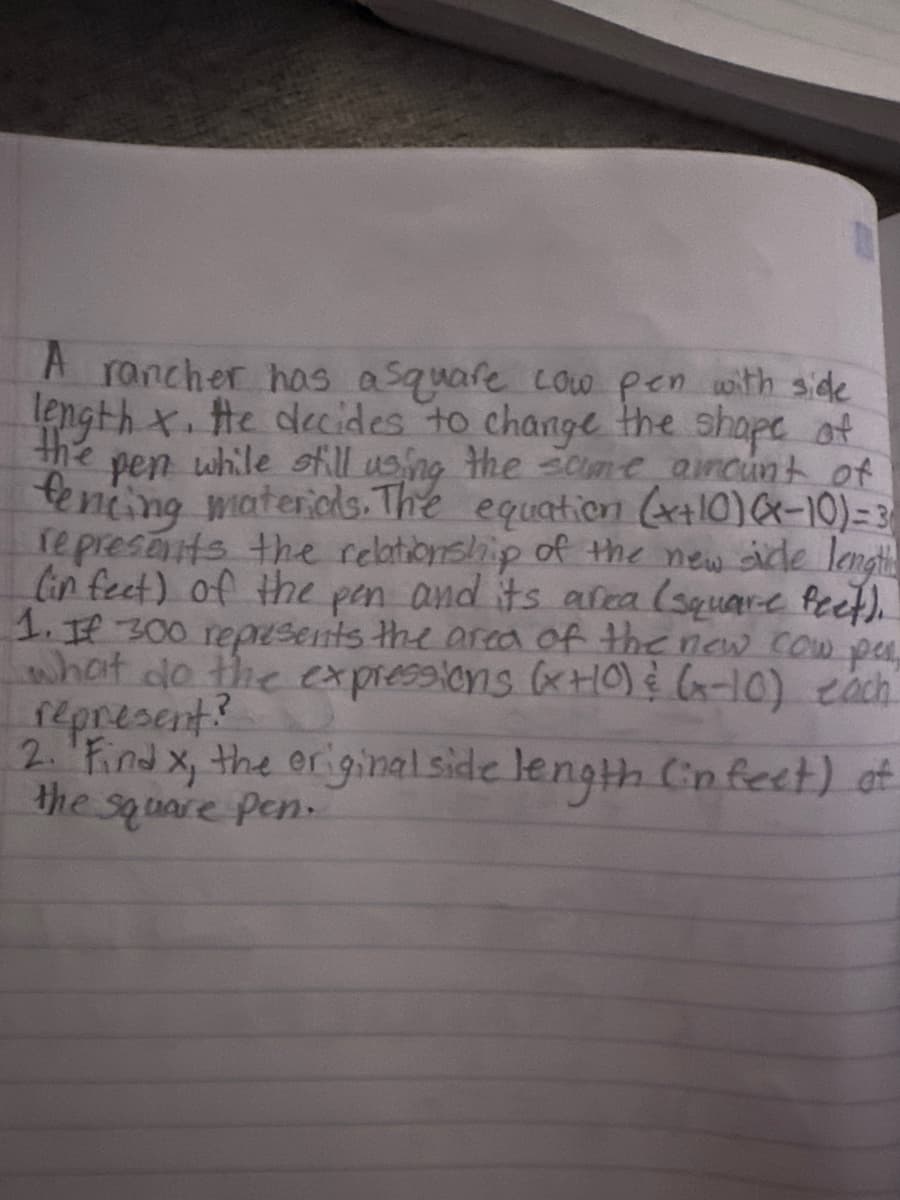 A rancher has a square cow pen with side
length x. He decides to change the shape of
the pen while still using the same amount of
fencing materials. The equation (x+10)(x-10)=3
represents the relationship of the new side length
(in feet) of the pen and its area (square feet).
1. If 300 represents the area of the new cow pen,
what do the expressions (x+10) & (x-10) each
represent?
2. Find x, the original side length (in feet) of
the square pen.